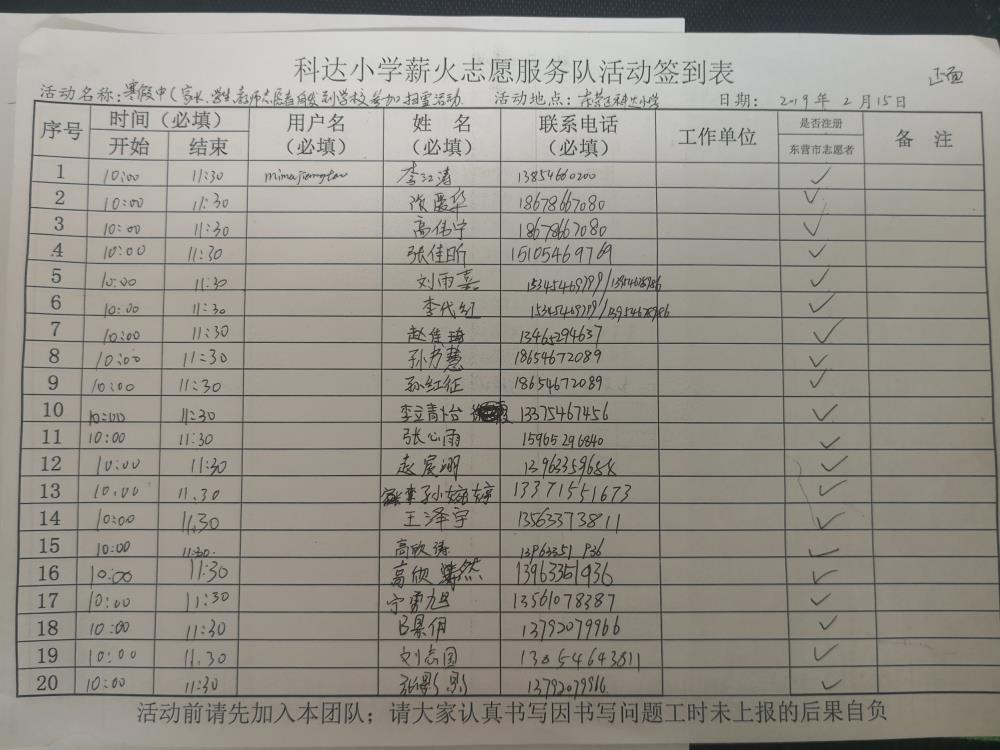 科达小学薪火志愿服务队活动签到表
正面
活动名称:寒假中(家长、学生、教师志愿者自发到学校参加扫雪活动. 活动地点:东营区科达小学 日期: 2019年2月15日
序号 时间(必填) 用户名(必填) 姓 名(必填) 联系电话(必填) 工作单位 是否注册 备 注
开始 结束 东营市志愿者
1 10:00 11:30 李江涛 13854660200 ✓
2 10:00 11:30 张爱华 18678667080 ✓
3 10:00 11:30 高伟宁 18678667080 ✓
4 10:00 11:30 张佳昕 15105469769 ✓
5 10:00 11:30 刘雨嘉 ✓
6 10:00 11:30 李代红 ✓
7 10:00 11:30 赵佳琦 13465294637 ✓
8 10:00 11:30 18654672089 ✓
9 10:00 11:30 孙红征 18654672089 ✓
10 10:00 11:30 13375467456 ✓
11 10:00 11:30 张心雨 15965296840 ✓
12 10:00 11:30 赵宸翊 ✓
13 10:00 11:30 13371551673 ✓
14 10:00 11:30 王泽宇 13563373811 ✓
15 10:00 11:30 高歌 ✓
16 10:00 11:30 高欣然 13963351936 ✓
17 10:00 11:30 宁勇旭 13561078387 ✓
18 10:00 11:30 13792079966 ✓
19 10:00 11:30 刘志国 13054643811 ✓
20 10:00 11:30 ✓
活动前请先加入本团队;请大家认真书写因书写问题工时未上报的后果自负